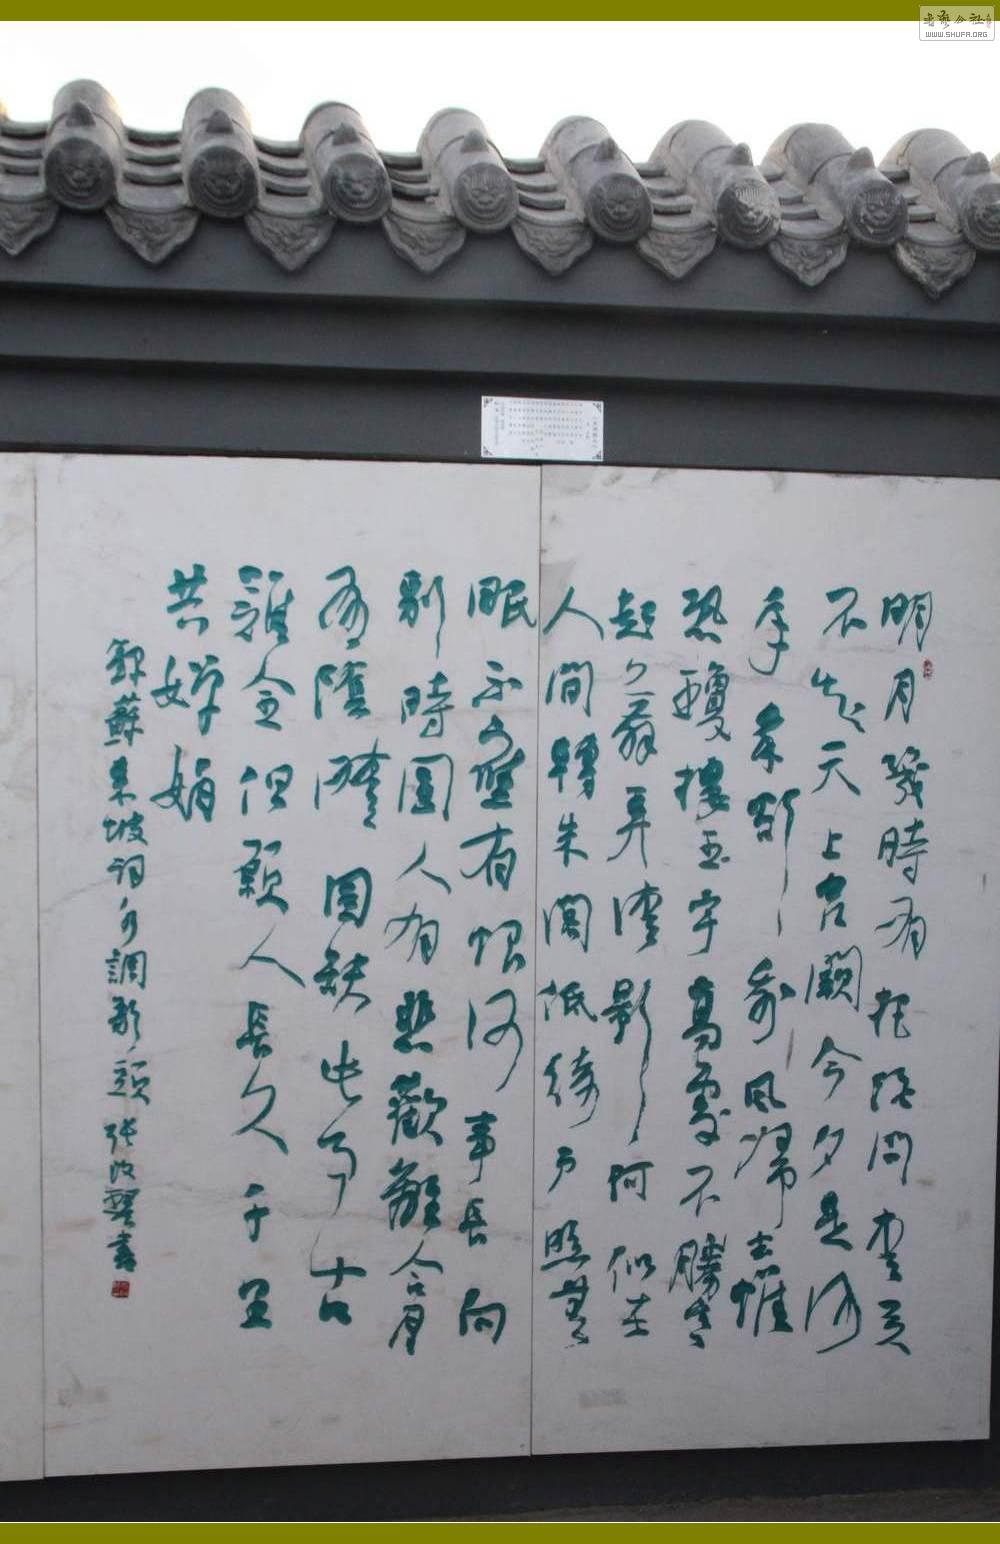 明月幾時有把酒問青天
不知天上宮闕今夕是何
年我欲乘風歸去惟
恐瓊樓玉宇高處不勝寒
起舞弄清影何似在
人間轉朱閣低綺戶照無
眠不應有恨何事長向
別時圓人有悲歡離合月
有陰晴圓缺此事古
難全但願人長久千里
共嬋娟
錄蘇東坡詞水調歌頭 張改琴書
WWW.SHUFA.ORG